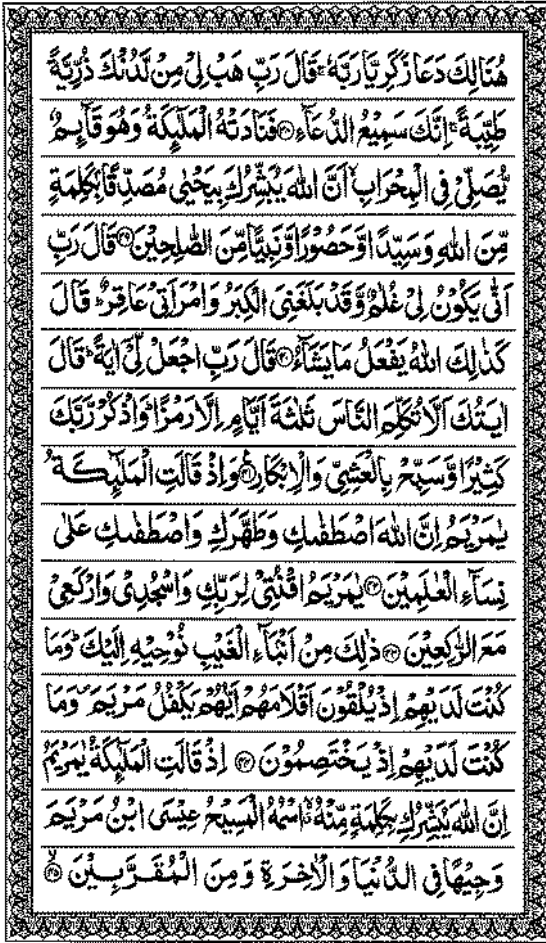 هُنَالِكَ دَعَا زَكَرِيَّا رَبَّهٗ ۚ قَالَ رَبِّ هَبْ لِیْ مِنْ لَّدُنْكَ ذُرِّیَّةً
طَیِّبَةً ۚ اِنَّكَ سَمِیْعُ الدُّعَآءِ ﴿۳۸﴾ فَنَادَتْهُ الْمَلٰٓئِكَةُ وَهُوَ قَآئِمٌ
یُّصَلِّیْ فِی الْمِحْرَابِ ۙ اَنَّ اللّٰهَ یُبَشِّرُكَ بِیَحْیٰی مُصَدِّقًۢا بِكَلِمَةٍ
مِّنَ اللّٰهِ وَسَیِّدًا وَّحَصُوْرًا وَّنَبِیًّا مِّنَ الصّٰلِحِیْنَ ﴿۳۹﴾ قَالَ رَبِّ
اَنّٰی یَكُوْنُ لِیْ غُلٰمٌ وَّقَدْ بَلَغَنِیَ الْكِبَرُ وَامْرَاَتِیْ عَاقِرٌ ؕ قَالَ
كَذٰلِكَ اللّٰهُ یَفْعَلُ مَا یَشَآءُ ﴿۴۰﴾ قَالَ رَبِّ اجْعَلْ لِّیْۤ اٰیَةً ؕ قَالَ
اٰیَتُكَ اَلَّا تُكَلِّمَ النَّاسَ ثَلٰثَةَ اَیَّامٍ اِلَّا رَمْزًا ؕ وَاذْكُرْ رَّبَّكَ
كَثِیْرًا وَّسَبِّحْ بِالْعَشِیِّ وَالْاِبْكَارِ ﴿۴۱﴾ وَاِذْ قَالَتِ الْمَلٰٓئِكَةُ
یٰمَرْیَمُ اِنَّ اللّٰهَ اصْطَفٰىكِ وَطَهَّرَكِ وَاصْطَفٰىكِ عَلٰی
نِسَآءِ الْعٰلَمِیْنَ ﴿۴۲﴾ یٰمَرْیَمُ اقْنُتِیْ لِرَبِّكِ وَاسْجُدِیْ وَارْكَعِیْ
مَعَ الرّٰكِعِیْنَ ﴿۴۳﴾ ذٰلِكَ مِنْ اَنْۢبَآءِ الْغَیْبِ نُوْحِیْهِ اِلَیْكَ ؕ وَمَا
كُنْتَ لَدَیْهِمْ اِذْ یُلْقُوْنَ اَقْلَامَهُمْ اَیُّهُمْ یَكْفُلُ مَرْیَمَ ۪ وَمَا
كُنْتَ لَدَیْهِمْ اِذْ یَخْتَصِمُوْنَ ﴿۴۴﴾ اِذْ قَالَتِ الْمَلٰٓئِكَةُ یٰمَرْیَمُ
اِنَّ اللّٰهَ یُبَشِّرُكِ بِكَلِمَةٍ مِّنْهُ ۖۗ اسْمُهُ الْمَسِیْحُ عِیْسَی ابْنُ مَرْیَمَ
وَجِیْهًا فِی الدُّنْیَا وَالْاٰخِرَةِ وَمِنَ الْمُقَرَّبِیْنَ ﴿۴۵﴾ ۙ